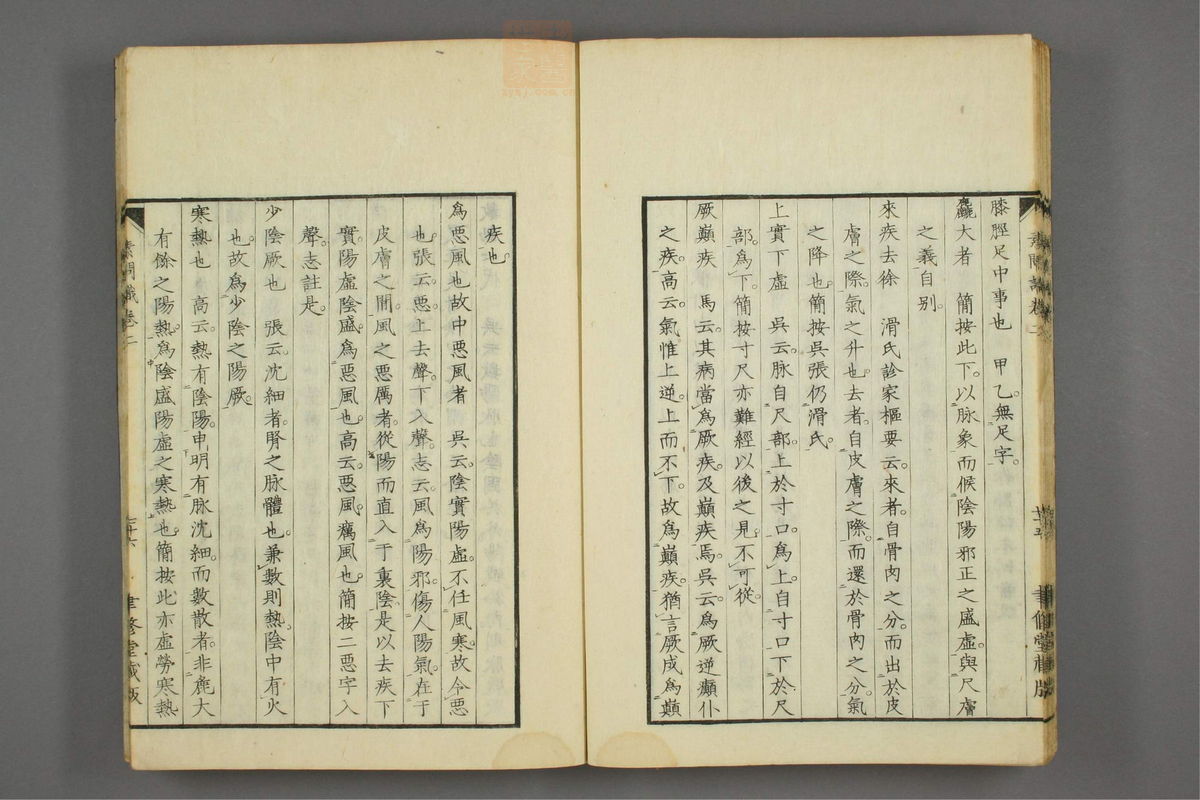 膝脛足中事也　甲乙。無足字。
麤大者　簡按此下。以脉象而候陰陽邪正之盛虛。與尺膚
之義自別。
來疾去徐　滑氏診家樞要云。來者。自骨肉之分。而出於皮
膚之際。氣之升也。去者。自皮膚之際。而還於骨肉之分。氣
之降也。簡按吳張仍滑氏。
上實下虛　吳云。脉自尺部。上於寸口爲上。自寸口下於尺
部。爲下。簡按寸尺亦難經以後之見。不可從。
厥巔疾　馬云。其病當爲厥疾。及巔疾焉。吳云。爲厥逆癲仆
之疾。高云。氣惟上逆。上而不下。故爲巔疾。猶言厥成爲巔
素問識卷二
廿五
聿修堂藏版
疾也。
爲惡風也故中惡風者　吳云。陰實陽虛。不任風寒。故令惡
也。張云。惡。上去聲。下入聲。志云。風爲陽邪。傷人陽氣。在于
皮膚之間。風之惡厲者。從陽而直入于裏陰。是以去疾下
實。陽虛陰盛。爲惡風也。高云。惡風。癘風也。簡按二惡字入
聲。志註是。
少陰厥也　張云。沈細者。腎之脉體也。兼數則熱。陰中有火
也。故爲少陰之陽厥。
寒熱也　高云。熱有陰陽。申明有脉沈細。而數散者。非麁大
有餘之陽熱。爲陰盛陽虛之寒熱也。簡按此亦虛勞寒熱
素問識卷二
二十六
聿修堂藏版